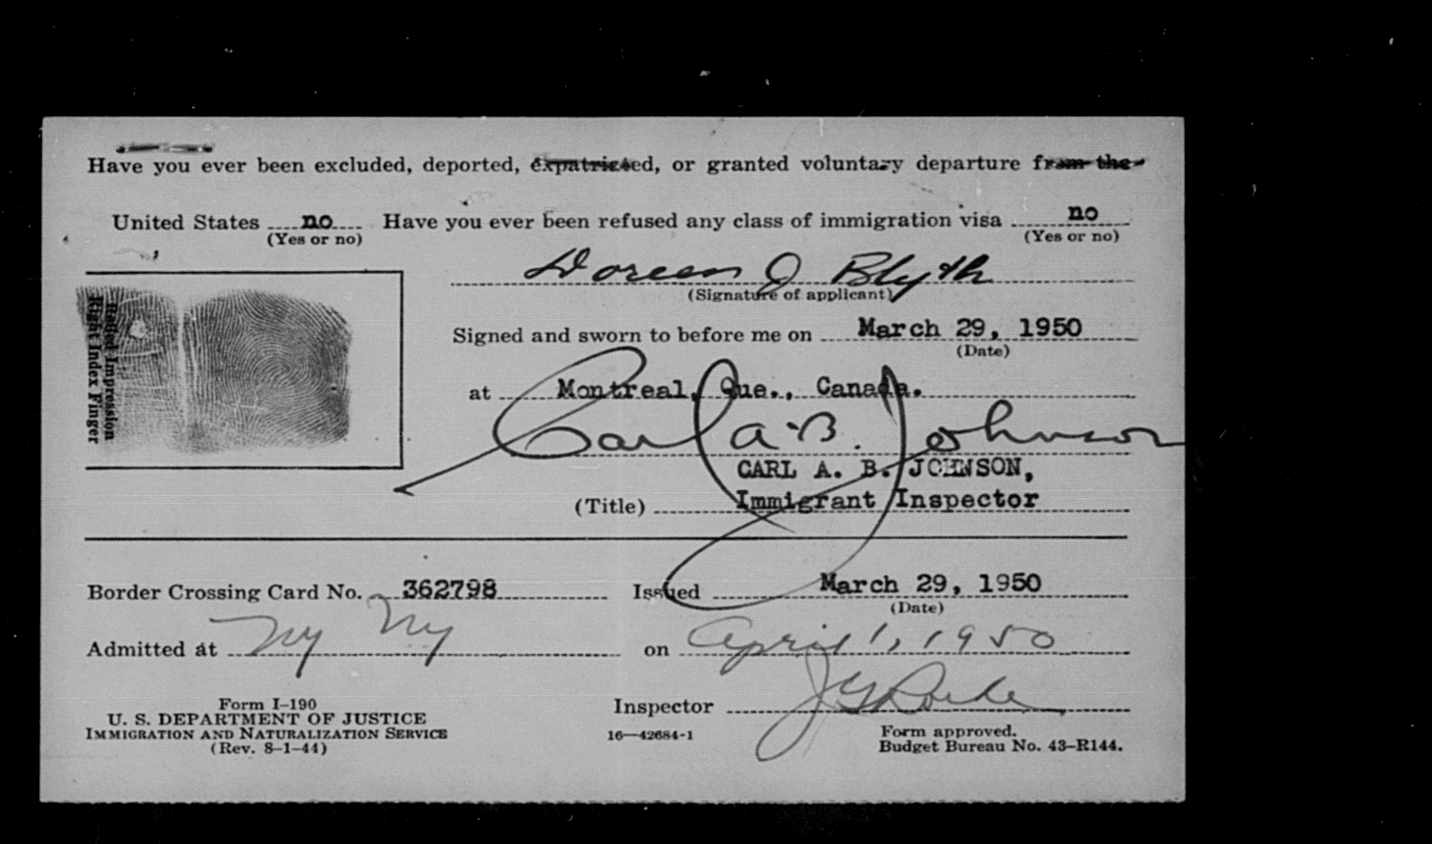 Have you ever been excluded, deported, expatriated, or granted voluntary departure from the
United States no Have you ever been refused any class of immigration visa no
(Yes or no) (Yes or no)
Doreen J Blyth
(Signature of applicant)
Rolled Impression
Right Index Finger
Signed and sworn to before me on March 29, 1950
(Date)
at Montreal, Que., Canada.
Carl A. B. Johnson
CARL A. B. JOHNSON,
(Title) Immigrant Inspector
Border Crossing Card No. 362798 Issued March 29, 1950
(Date)
Admitted at Ny Ny on April 1, 1950
Inspector J
Form I-190
U. S. DEPARTMENT OF JUSTICE
IMMIGRATION AND NATURALIZATION SERVICE
(Rev. 8-1-44)
16—42684-1
Form approved.
Budget Bureau No. 43-R144.